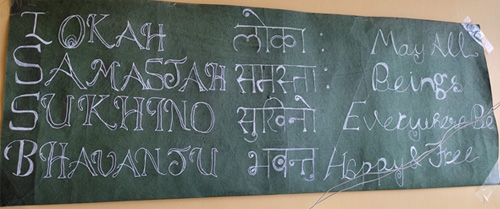 LOKAH लोका: May All
SAMASTAH समस्ता: Beings
SUKHINO सुखिनो Everywhere Be
BHAVANTU भवन्तु Happy & Free